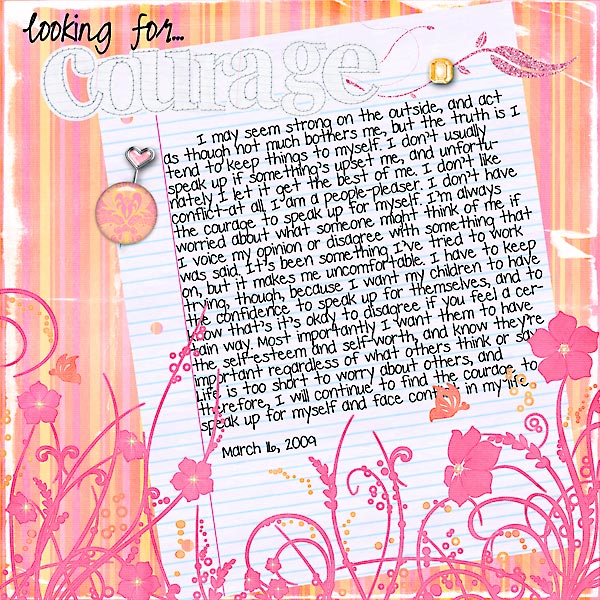 looking for...
courage
I may seem strong on the outside, and act
as though not much bothers me, but the truth is I
tend to keep things to myself. I don't usually
speak up if something's upset me, and unfortu-
nately I let it get the best of me. I don't like
conflict at all. I am a people-pleaser. I don't have
the courage to speak up for myself. I'm always
worried about what someone might think of me if
I voice my opinion or disagree with something that
was said. It's been something I've tried to work
on, but it makes me uncomfortable. I have to keep
trying, though, because I want my children to have
the confidence to speak up for themselves, and to
know that's it's okay to disagree if you feel a cer-
tain way. Most importantly I want them to have
the self-esteem and self-worth, and know they're
important regardless of what others think or say.
Life is too short to worry about others, and
therefore, I will continue to find the courage to
speak up for myself and face in my life
March 16, 2009